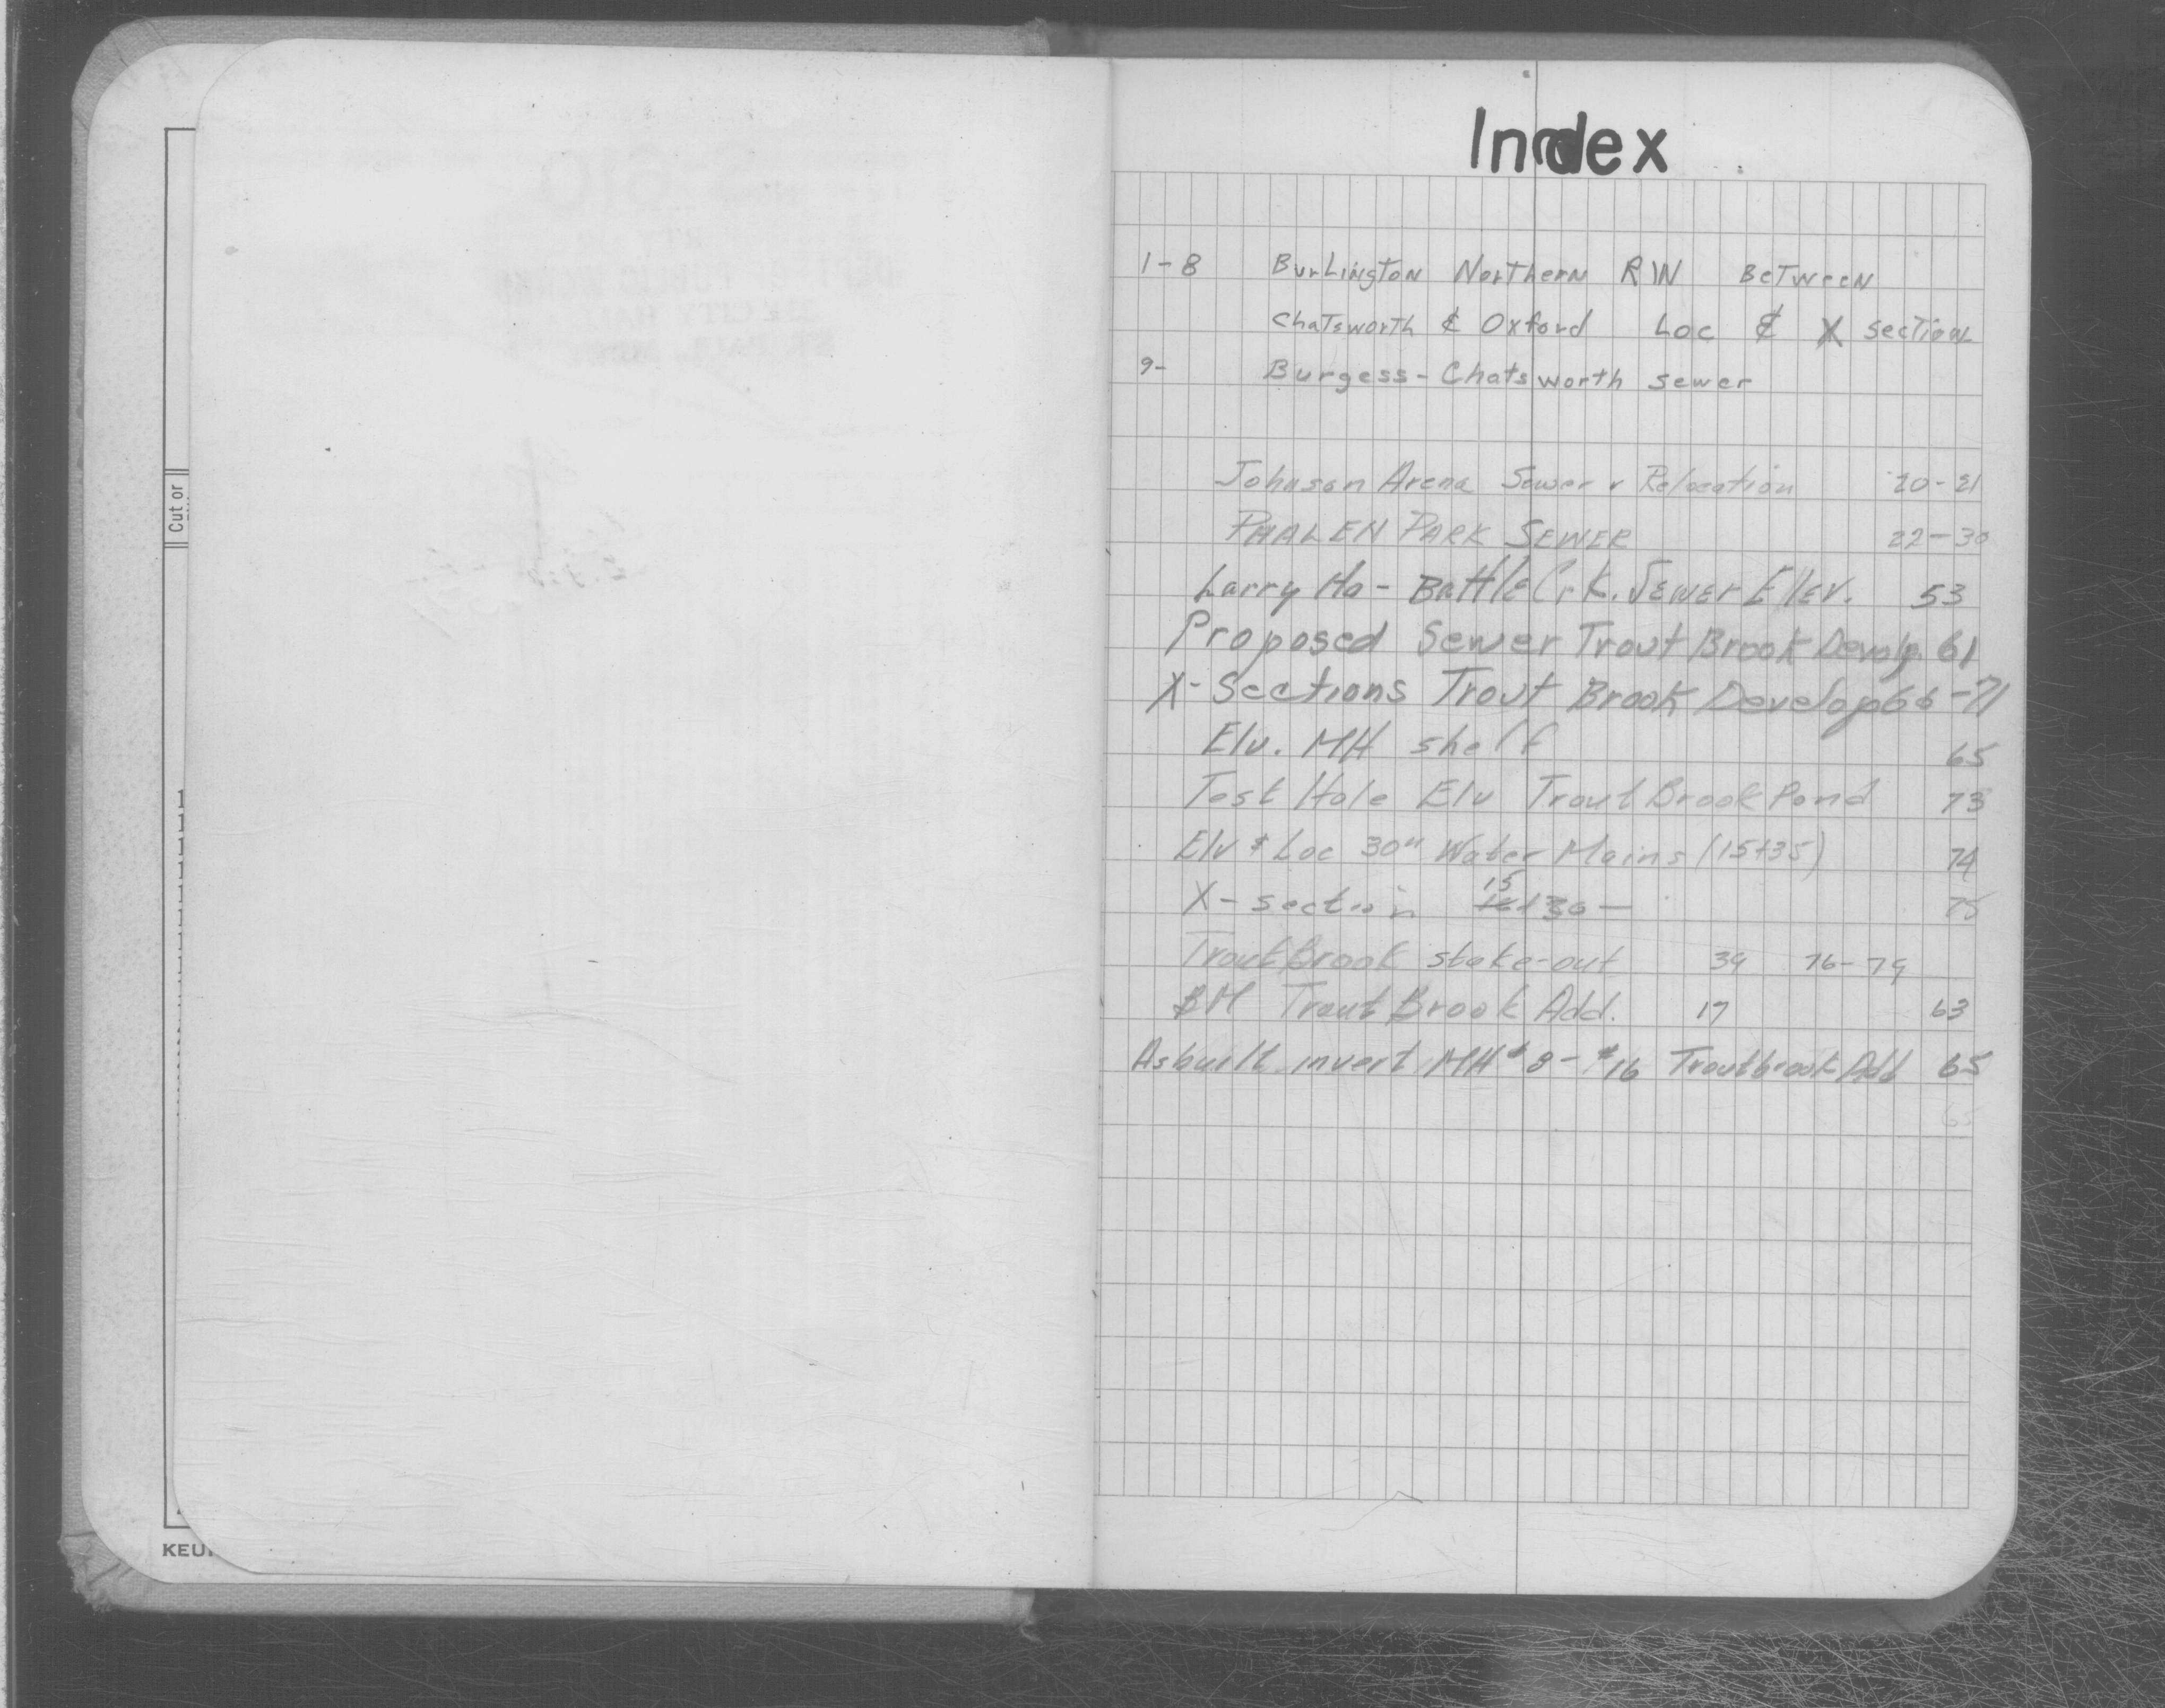 Cut or
KEU
Index
1-8 BurLingTon Northern R/W BeTween
ChaTsworth & Oxford Loc ⅊ X section
9- Burgess-Chatsworth Sewer
Johnson Arena Sewer Relocation 20-21
PHALEN PARK SEWER 22-30
Larry Ho - Battle Crk. Sewer Elev. 53
Proposed Sewer Trout Brook Develp. 61
X-Sections Trout Brook Develop 66-71
Elv. MH shelf 65
Test Hole Elv Trout Brook Pond 73
Elv & Loc 30" Water Mains (15+35) 74
X-section 15 +30 — 75
Trout Brook stake-out 39 76-79
BM Trout Brook Add. 17 63
Asbuilt invert MH #8 - #16 Troutbrook Add 65
65